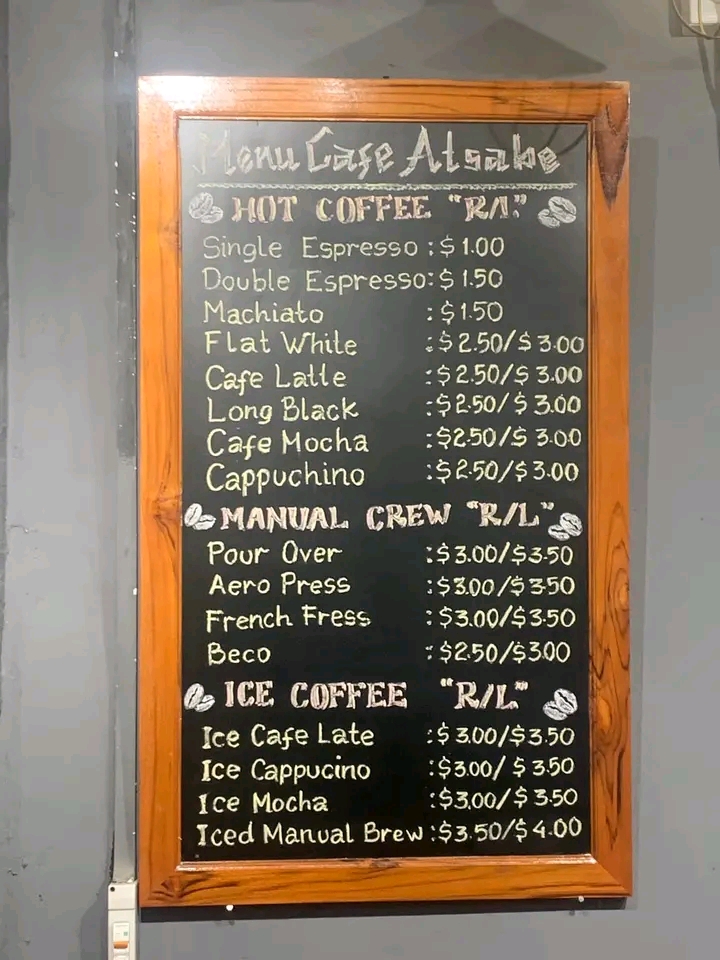 Menu Cafe Atsabe
HOT COFFEE "R/L"
Single Espresso : $ 1.00
Double Espresso: $ 1.50
Machiato : $ 1.50
Flat White : $ 2.50/$ 3.00
Cafe Latte : $ 2.50/$ 3.00
Long Black : $ 2.50/$ 3.00
Cafe Mocha : $2.50/$ 3.00
Cappuchino : $ 2.50/$3.00
MANUAL CREW "R/L"
Pour Over : $3.00/$3.50
Aero Press : $3.00/$3.50
French Fress : $3.00/$3.50
Beco : $2.50/$3.00
ICE COFFEE "R/L"
Ice Cafe Late : $3.00/$3.50
Ice Cappucino : $3.00/ $ 3.50
Ice Mocha : $3.00/$ 3.50
Iced Manual Brew : $3.50/$ 4.00